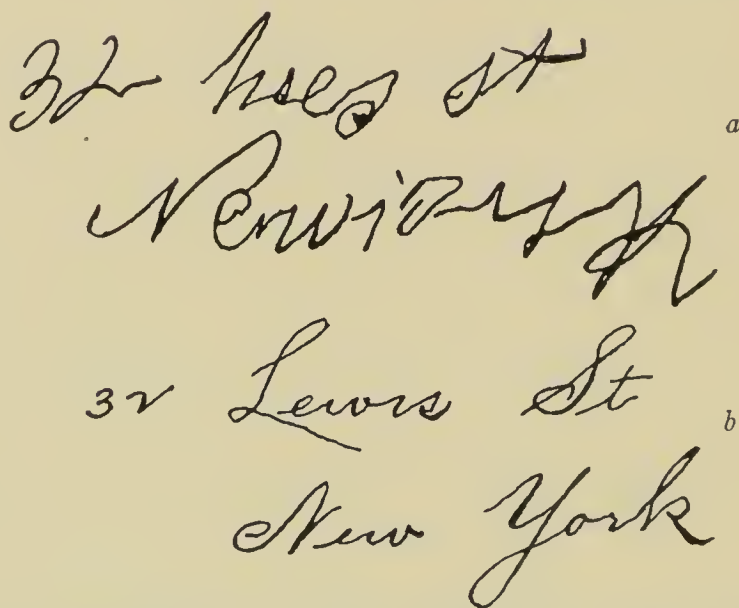 32 hses st
a
Newiork
32 Lewis St
b
New York